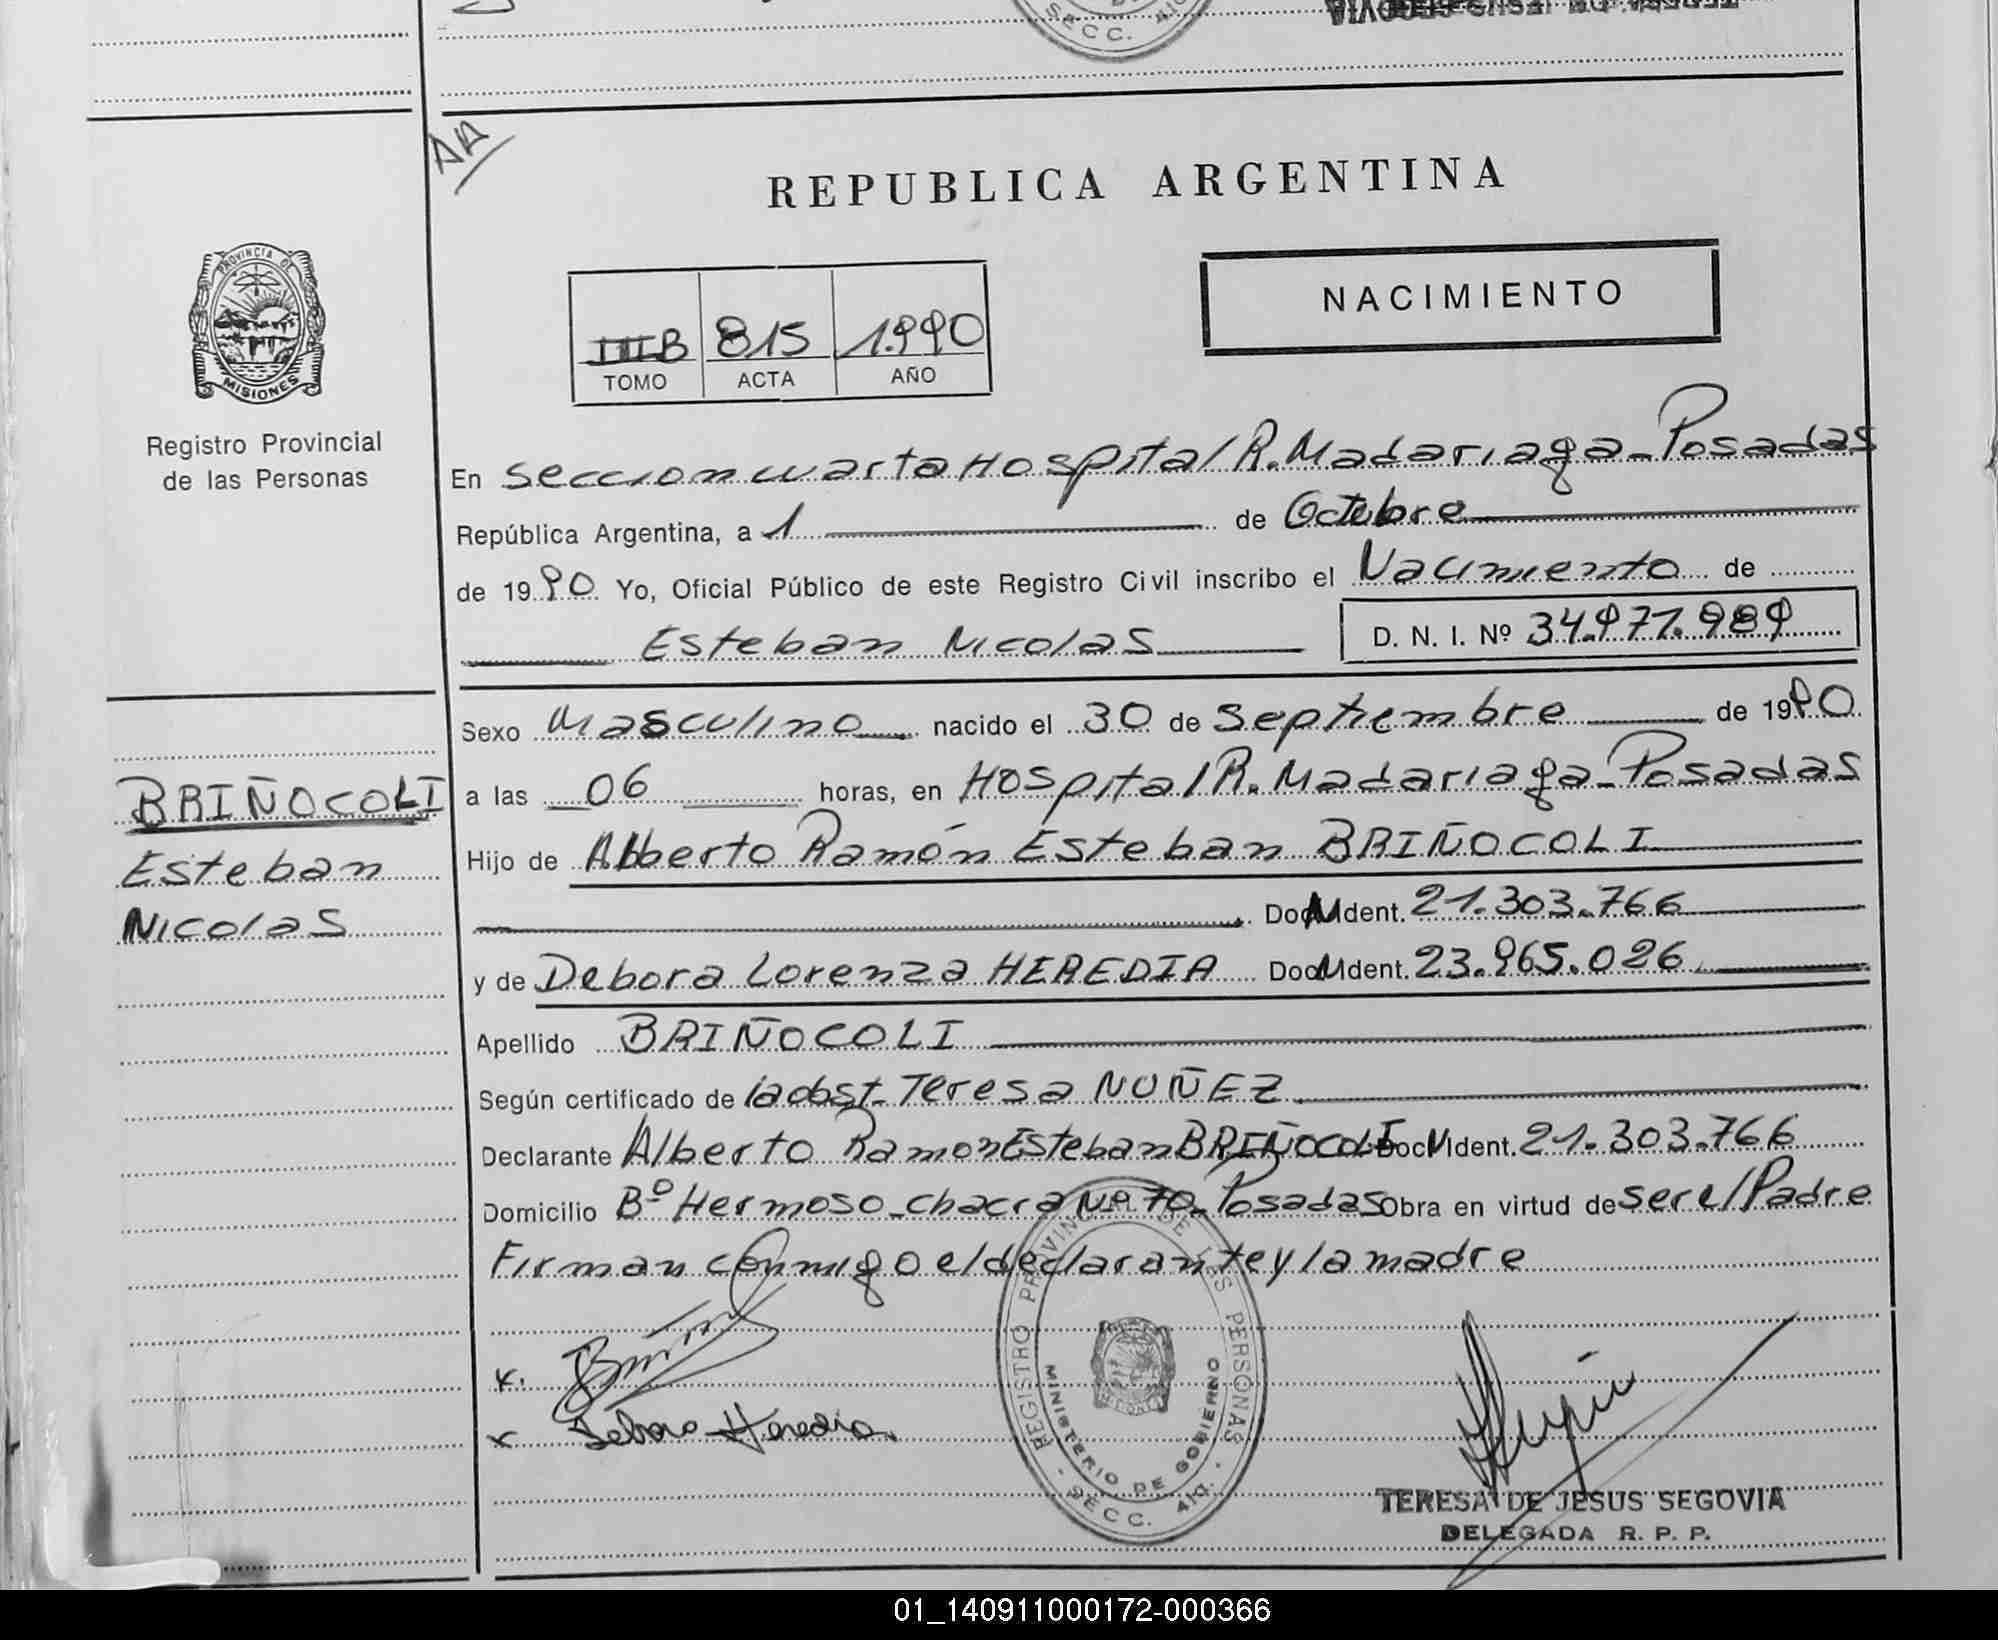 SECC. 4ta
TERESA DE JESUS SEGOVIA
AA
REPUBLICA ARGENTINA
PROVINCIA DE
MISIONES
Registro Provincial
de las Personas
NACIMIENTO
IIIB 815 1.990
TOMO ACTA AÑO
En Seccion cuarta Hospital R. Madariaga - Posadas
República Argentina, a 1 de Octubre
de 1990 Yo, Oficial Público de este Registro Civil inscribo el Nacimiento de
Esteban Nicolas D. N. I. Nº 34.971.989
Sexo Masculino nacido el 30 de Septiembre de 1990
a las 06 horas, en Hospital R. Madariaga - Posadas
BRIÑOCOLI
Esteban
Nicolas
Hijo de Alberto Ramón Esteban BRIÑOCOLI
Doc. Ident. 21.303.766
y de Debora Lorenza HEREDIA Doc. Ident. 23.965.026
Apellido BRIÑOCOLI
Según certificado de la obst. Teresa NUÑEZ
Declarante Alberto Ramon Esteban BRIÑOCOLI Doc. Ident. 21.303.766
Domicilio Bº Hermoso - chacra Nº 70 - Posadas Obra en virtud de ser el Padre
Firman conmigo el declarante y la madre
x.
x Debora Heredia.
REGISTRO PROVINCIAL DE LAS PERSONAS
MINISTERIO DE GOBIERNO
SECC. 4ta.
TERESA DE JESUS SEGOVIA
DELEGADA R. P. P.
01_140911000172-000366